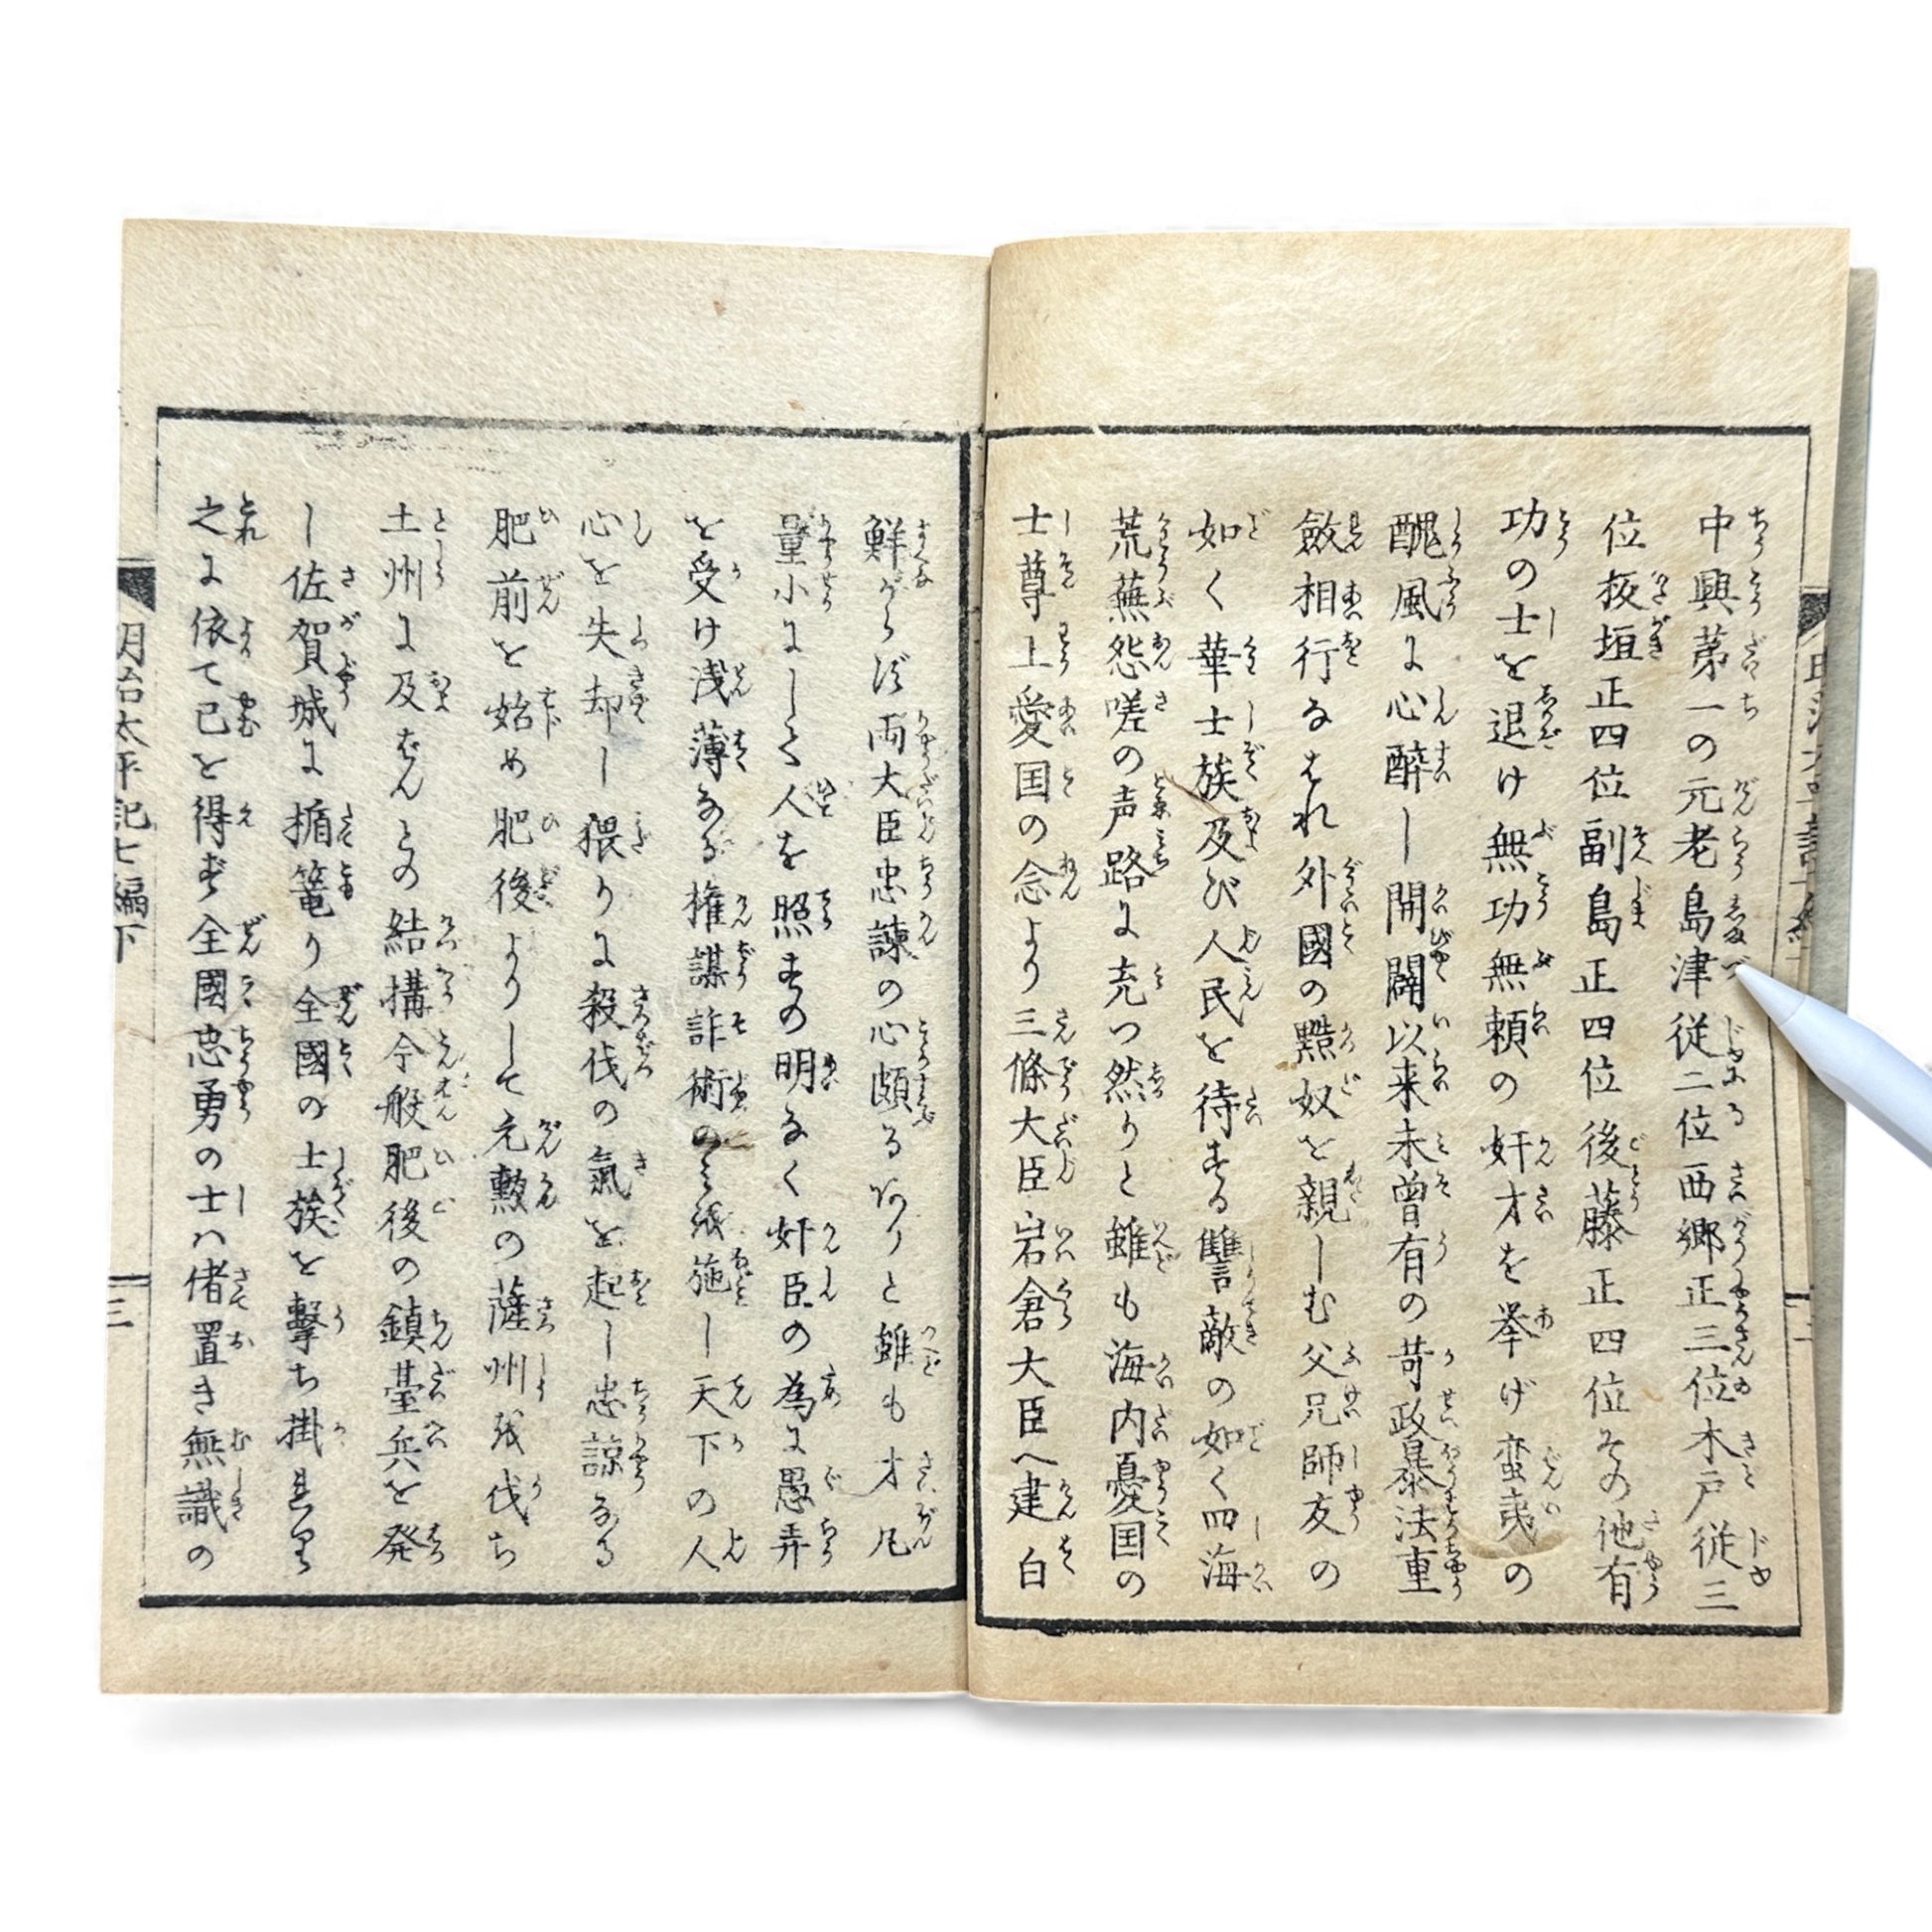 中興苐一の元老島津従二位西郷正三位木戸従三
位板垣正四位副島正四位後藤正四位その他有
功の士を退け無功無頼の奸才を挙げ蛮夷の
醜風に心酔し開闢以来未曾有の苛政暴法重
斂相行なはれ外國の黠奴を親しむ父兄師友の
如く華士族及び人民を待する讐敵の如く四海
荒蕪怨嗟の声路に充つ然りと雖も海内憂国の
士尊上愛国の念より三條大臣岩倉大臣へ建白
鮮からず両大臣忠諫の心頗るありと雖も才凡
量小にして人を照すの明なく奸臣の為に愚弄
を受け浅薄なる権謀詐術のミを施し天下の人
心を失却し猥りに殺伐の氣を起し忠諒なる
肥前を始め肥後よりして元勲の薩州を伐ち
土州に及ばんとの結搆今般肥後の鎮臺兵を発
し佐賀城に楯篭り全國の士族を撃ち掛
之に依て已を得ず全國忠勇の士ハ偖置き無識の
明治太平記七編下
三